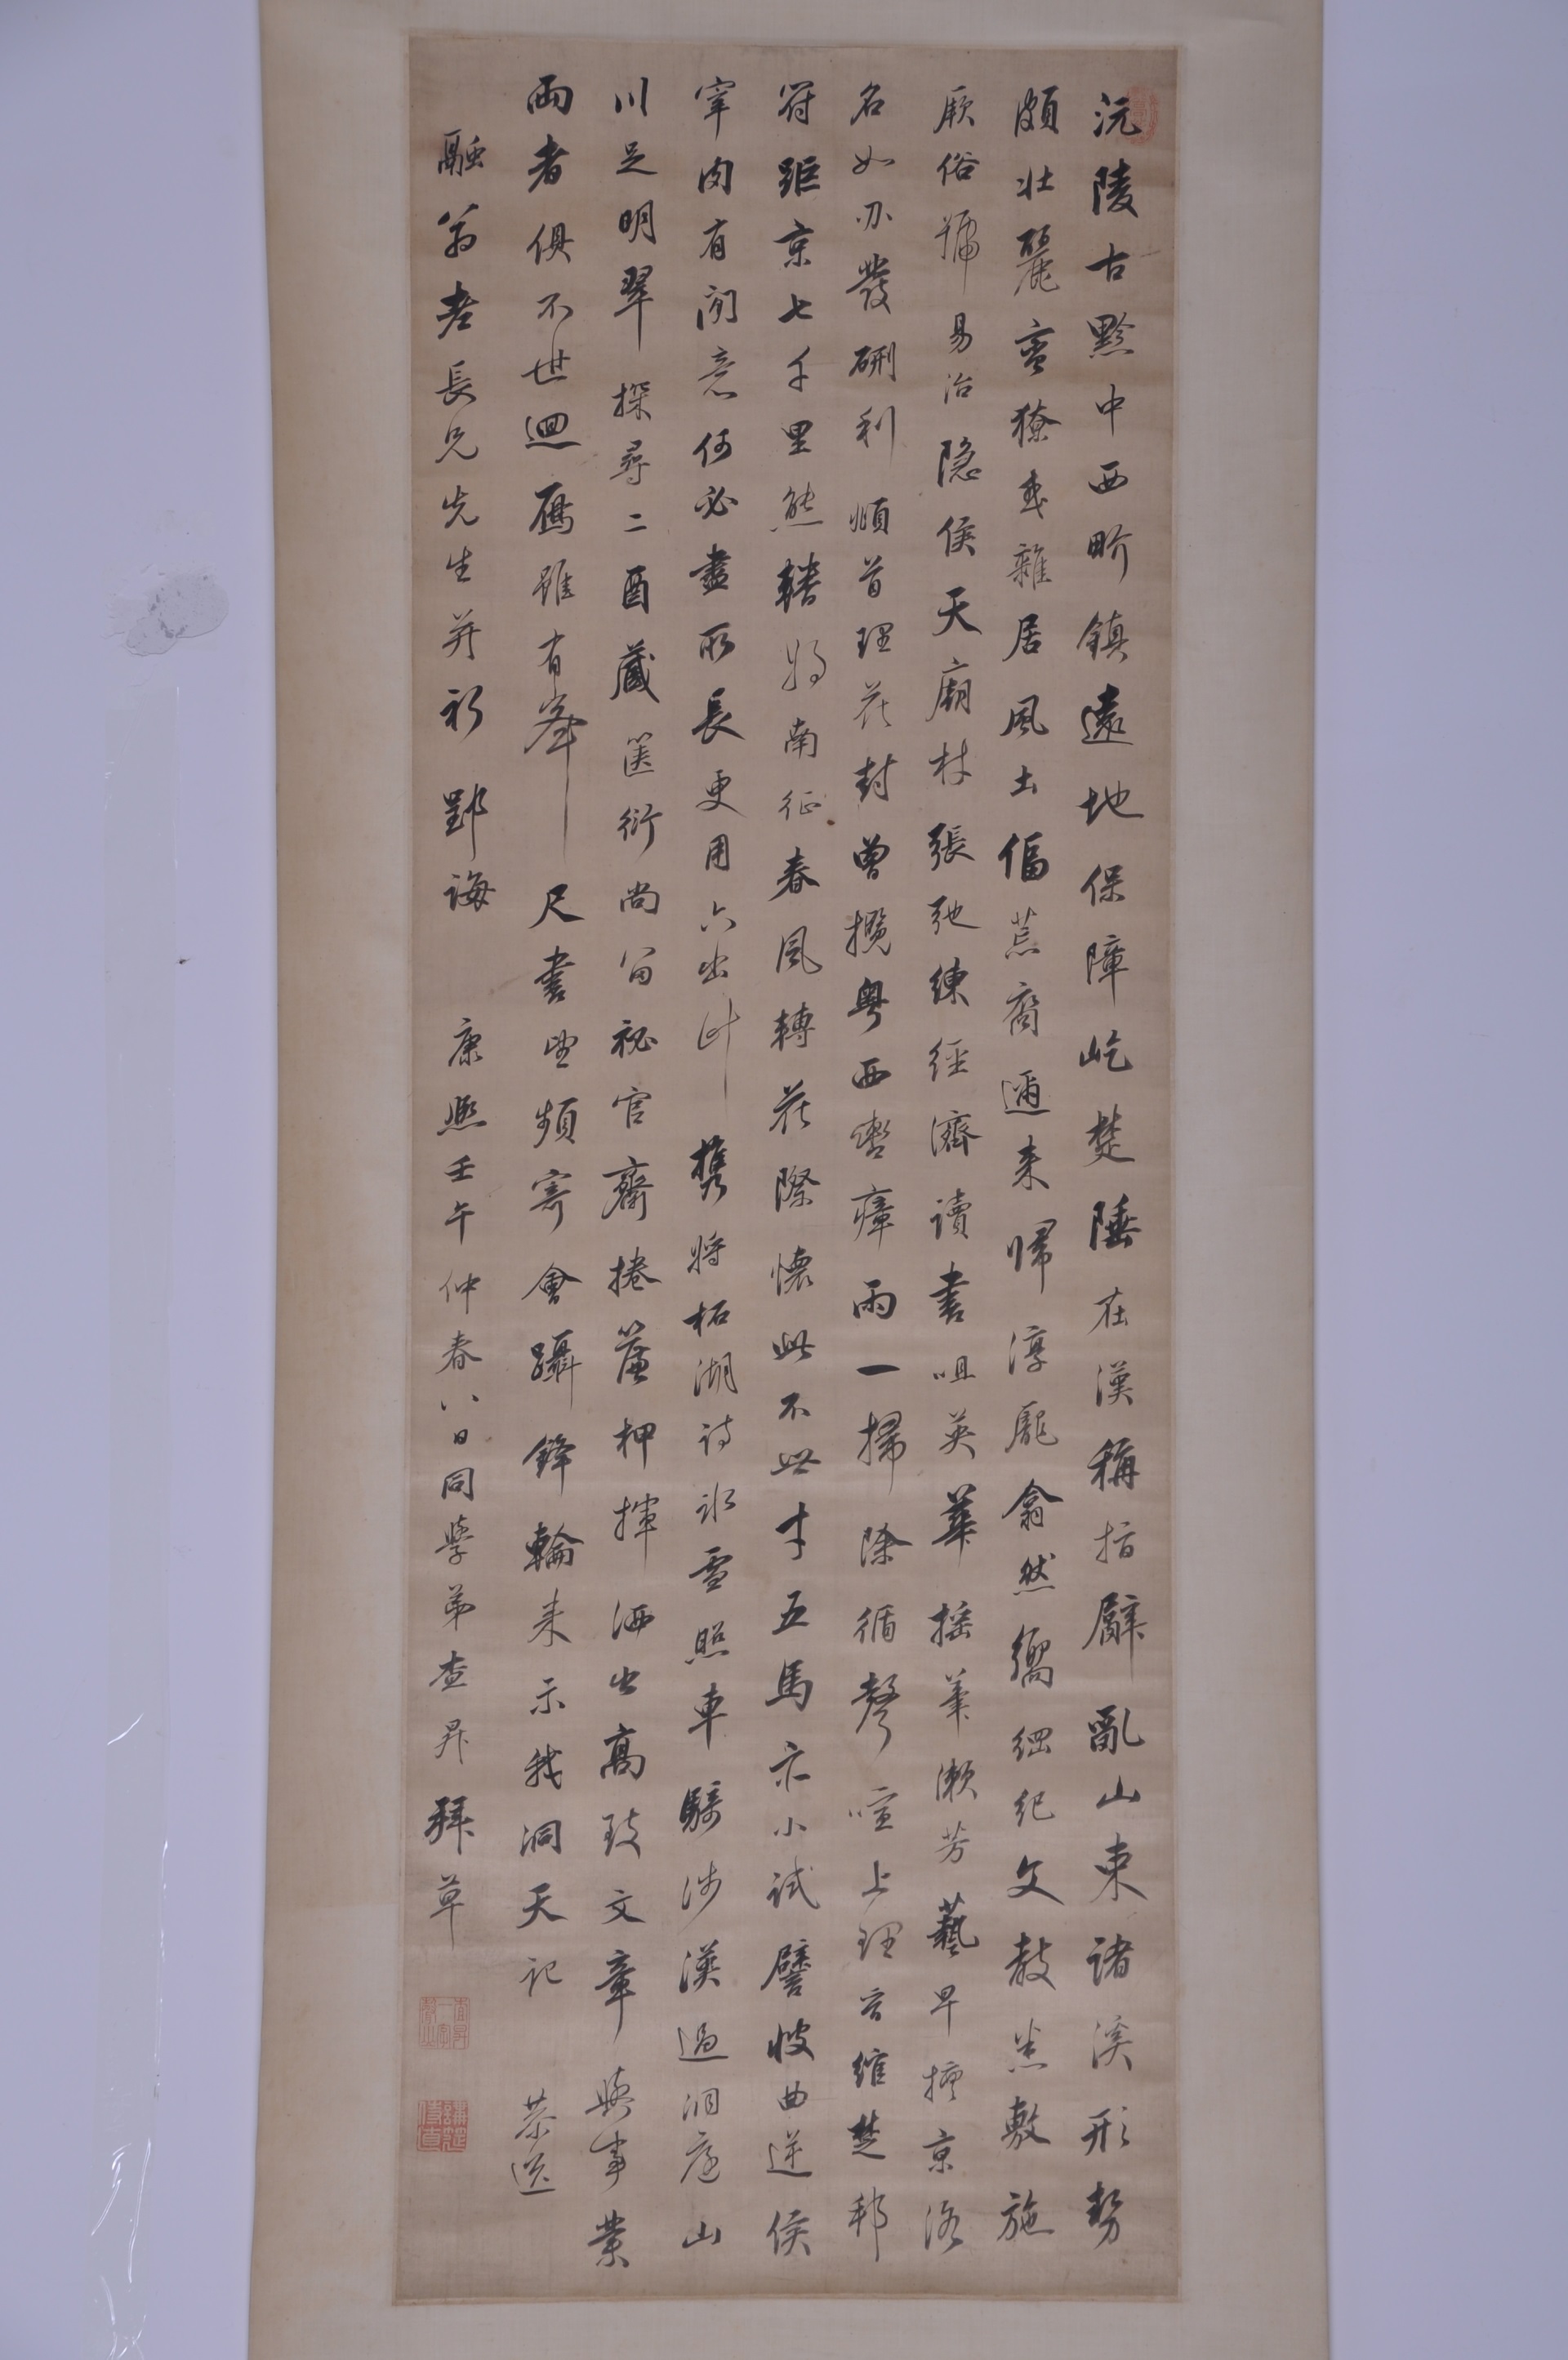 沅陵古黔中西畍鎮遠地保障屹楚陲在漢稱指臂亂山束諸溪形勢
頗壯麗蛮獠或雜居風土偪荒裔邇来歸淳龐翕然嚮綱紀文教悉敷施
厥俗號易治隐侯天廟材張弛練經濟讀書咀英華摇筆漱芳藝早擅京洛
名如刃發硎利傾首理花封曾攬粤西轡瘴雨一掃除循聲喧上理今綰楚邦
符距京七千里熊轓将南征春風轉花際懷此不世才五馬亦小試譬彼曲逆侯
宰肉有深意何必盡所長更用六出計携將柘湖詩氷雪照車騎涉漢過洞庭山
川足明翠探尋二酉藏篋衍尚留祕官齋捲簾押揮洒出高致文章與事業
兩者俱不世迴雁雖有峯尺書望頻寄會躡鋒輪来示我洞天記 恭送
融翁老長兄先生并祈郢誨 康熙壬午仲春八日同學弟查昇拜草